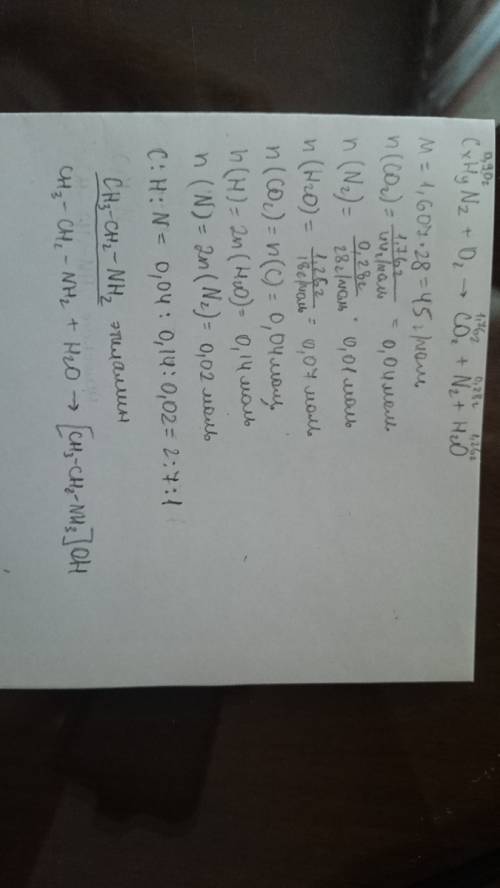 0,90г 1,76г 0,28г 1,26г
CxHyNz + O2 → CO2 + N2 + H2O
M = 1,607·28 = 45 г/моль
n(CO2) = 1,76г / 44г/моль = 0,04 моль
n(N2) = 0,28г / 28г/моль · 0,01 моль
n(H2O) = 1,26г / 18г/моль = 0,07 моль
n(CO2) = n(C) = 0,04 моль
n(H) = 2n(H2O) = 0,14 моль
n(N) = 2n(N2) = 0,02 моль
C : H : N = 0,04 : 0,14 : 0,02 = 2 : 7 : 1
CH3-CH2-NH2 этиламин
CH3-CH2-NH2 + H2O → [CH3-CH2-NH3]OH